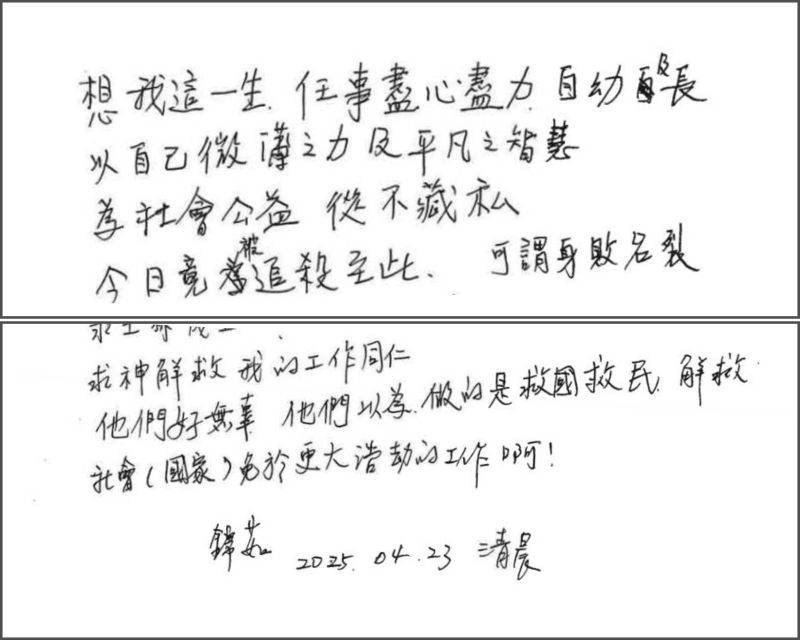 想我這一生. 任事盡心盡力. 自幼及長
以自己微薄之力及平凡之智慧
為社會公益 從不藏私
今日竟被追殺至此、 可謂身敗名裂
求神解救 我的工作同仁
他們好無辜 他們以為.做的是救國救民. 解救
社會(國家)免於更大浩劫的工作啊!
錦茹 2025. 04. 23 清晨